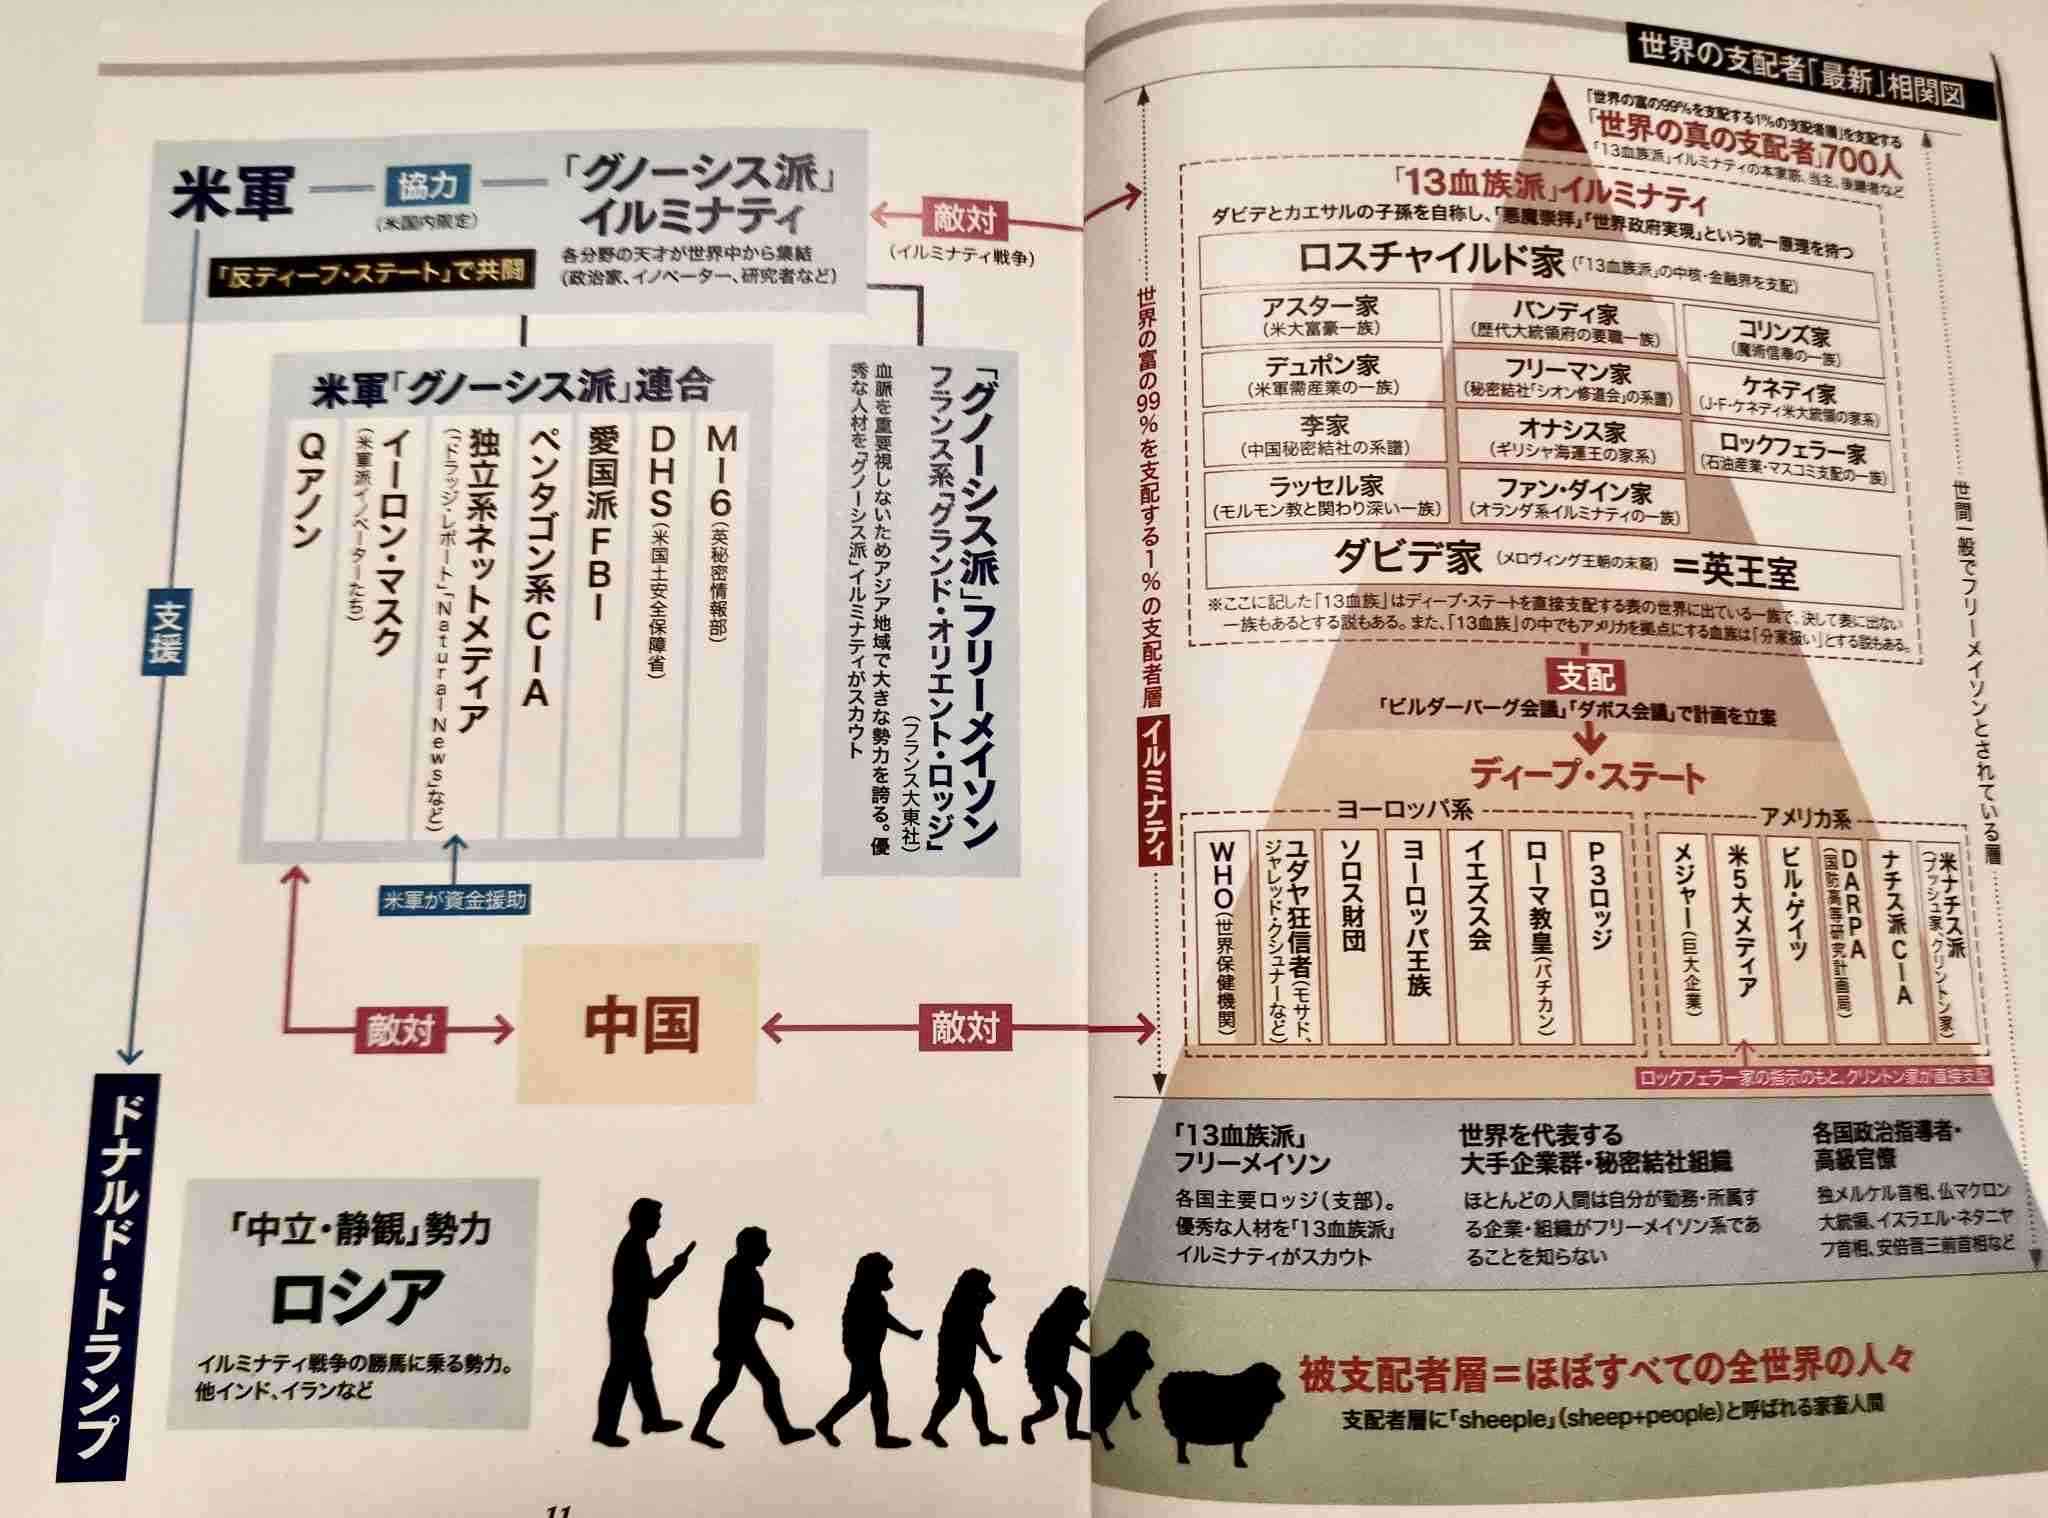 世界の支配者「最新」相関図
「世界の富の99%を支配する1%の支配者層」を支配する
「世界の真の支配者」700人
「13血族派」イルミナティの本家筋、当主、後継者など
「13血族派」イルミナティ
ダビデとカエサルの子孫を自称し、「悪魔崇拝」「世界政府実現」という統一原理を持つ
ロスチャイルド家(「13血族派」の中核・金融界を支配)
アスター家
(米大富豪一族)
バンディ家
(歴代大統領府の要職一族)
コリンズ家
(魔術信奉の一族)
デュポン家
(米軍需産業の一族)
フリーマン家
(秘密結社「シオン修道会」の系譜)
ケネディ家
(J・F・ケネディ米大統領の家系)
李家
(中国秘密結社の系譜)
オナシス家
(ギリシャ海運王の家系)
ロックフェラー家
(石油産業・マスコミ支配の一族)
ラッセル家
(モルモン教と関わり深い一族)
ファン・ダイン家
(オランダ系イルミナティの一族)
ダビデ家(メロヴィング王朝の末裔)=英王室
※ここに記した「13血族」はディープ・ステートを直接支配する表の世界に出ている一族で、決して表に出ない
一族もあるとする説もある。また、「13血族」の中でもアメリカを拠点にする血族は「分家扱い」とする説もある。
世界の富の99%を支配する1%の支配者層 イルミナティ
世間一般でフリーメイソンとされている層
支配
「ビルダーバーグ会議」「ダボス会議」で計画を立案
ディープ・ステート
ヨーロッパ系
P3ロッジ
ローマ教皇(バチカン)
イエズス会
ヨーロッパ王族
ソロス財団
ユダヤ狂信者(モサド、
ジャレッド・クシュナーなど)
WHO(世界保健機関)
アメリカ系
米ナチス派
(ブッシュ家、クリントン家)
ナチス派CIA
DARPA
(国防高等研究計画局)
ビル・ゲイツ
米5大メディア
メジャー(巨大企業)
ロックフェラー家の指示のもと、クリントン家が直接支配
「13血族派」
フリーメイソン
各国主要ロッジ(支部)。
優秀な人材を「13血族派」
イルミナティがスカウト
世界を代表する
大手企業群・秘密結社組織
ほとんどの人間は自分が勤務・所属す
る企業・組織がフリーメイソン系であ
ることを知らない
各国政治指導者・
高級官僚
独メルケル首相、仏マクロン
大統領、イスラエル・ネタニヤ
フ首相、安倍晋三前首相など
被支配者層=ほぼすべての全世界の人々
支配者層に「sheeple」(sheep+people)と呼ばれる家畜人間
米軍
協力
(米国内限定)
「グノーシス派」
イルミナティ
各分野の天才が世界中から集結
(政治家、イノベーター、研究者など)
「反ディープ・ステート」で共闘
敵対
(イルミナティ戦争)
米軍「グノーシス派」連合
MI6(英秘密情報部)
DHS(米国土安全保障省)
愛国派FBI
ペンタゴン系CIA
独立系ネットメディア
(「ドラッジ・レポート」「Natural News」など)
イーロン・マスク
(米軍派イノベーターたち)
Qアノン
米軍が資金援助
「グノーシス派」フリーメイソン
フランス系「グランド・オリエント・ロッジ」
(フランス大東社)
血脈を重要視しないためアジア地域で大きな勢力を誇る。優
秀な人材を「グノーシス派」イルミナティがスカウト
支援
敵対
中国
敵対
ドナルド・トランプ
「中立・静観」勢力
ロシア
イルミナティ戦争の勝馬に乗る勢力。
他インド、イランなど
11